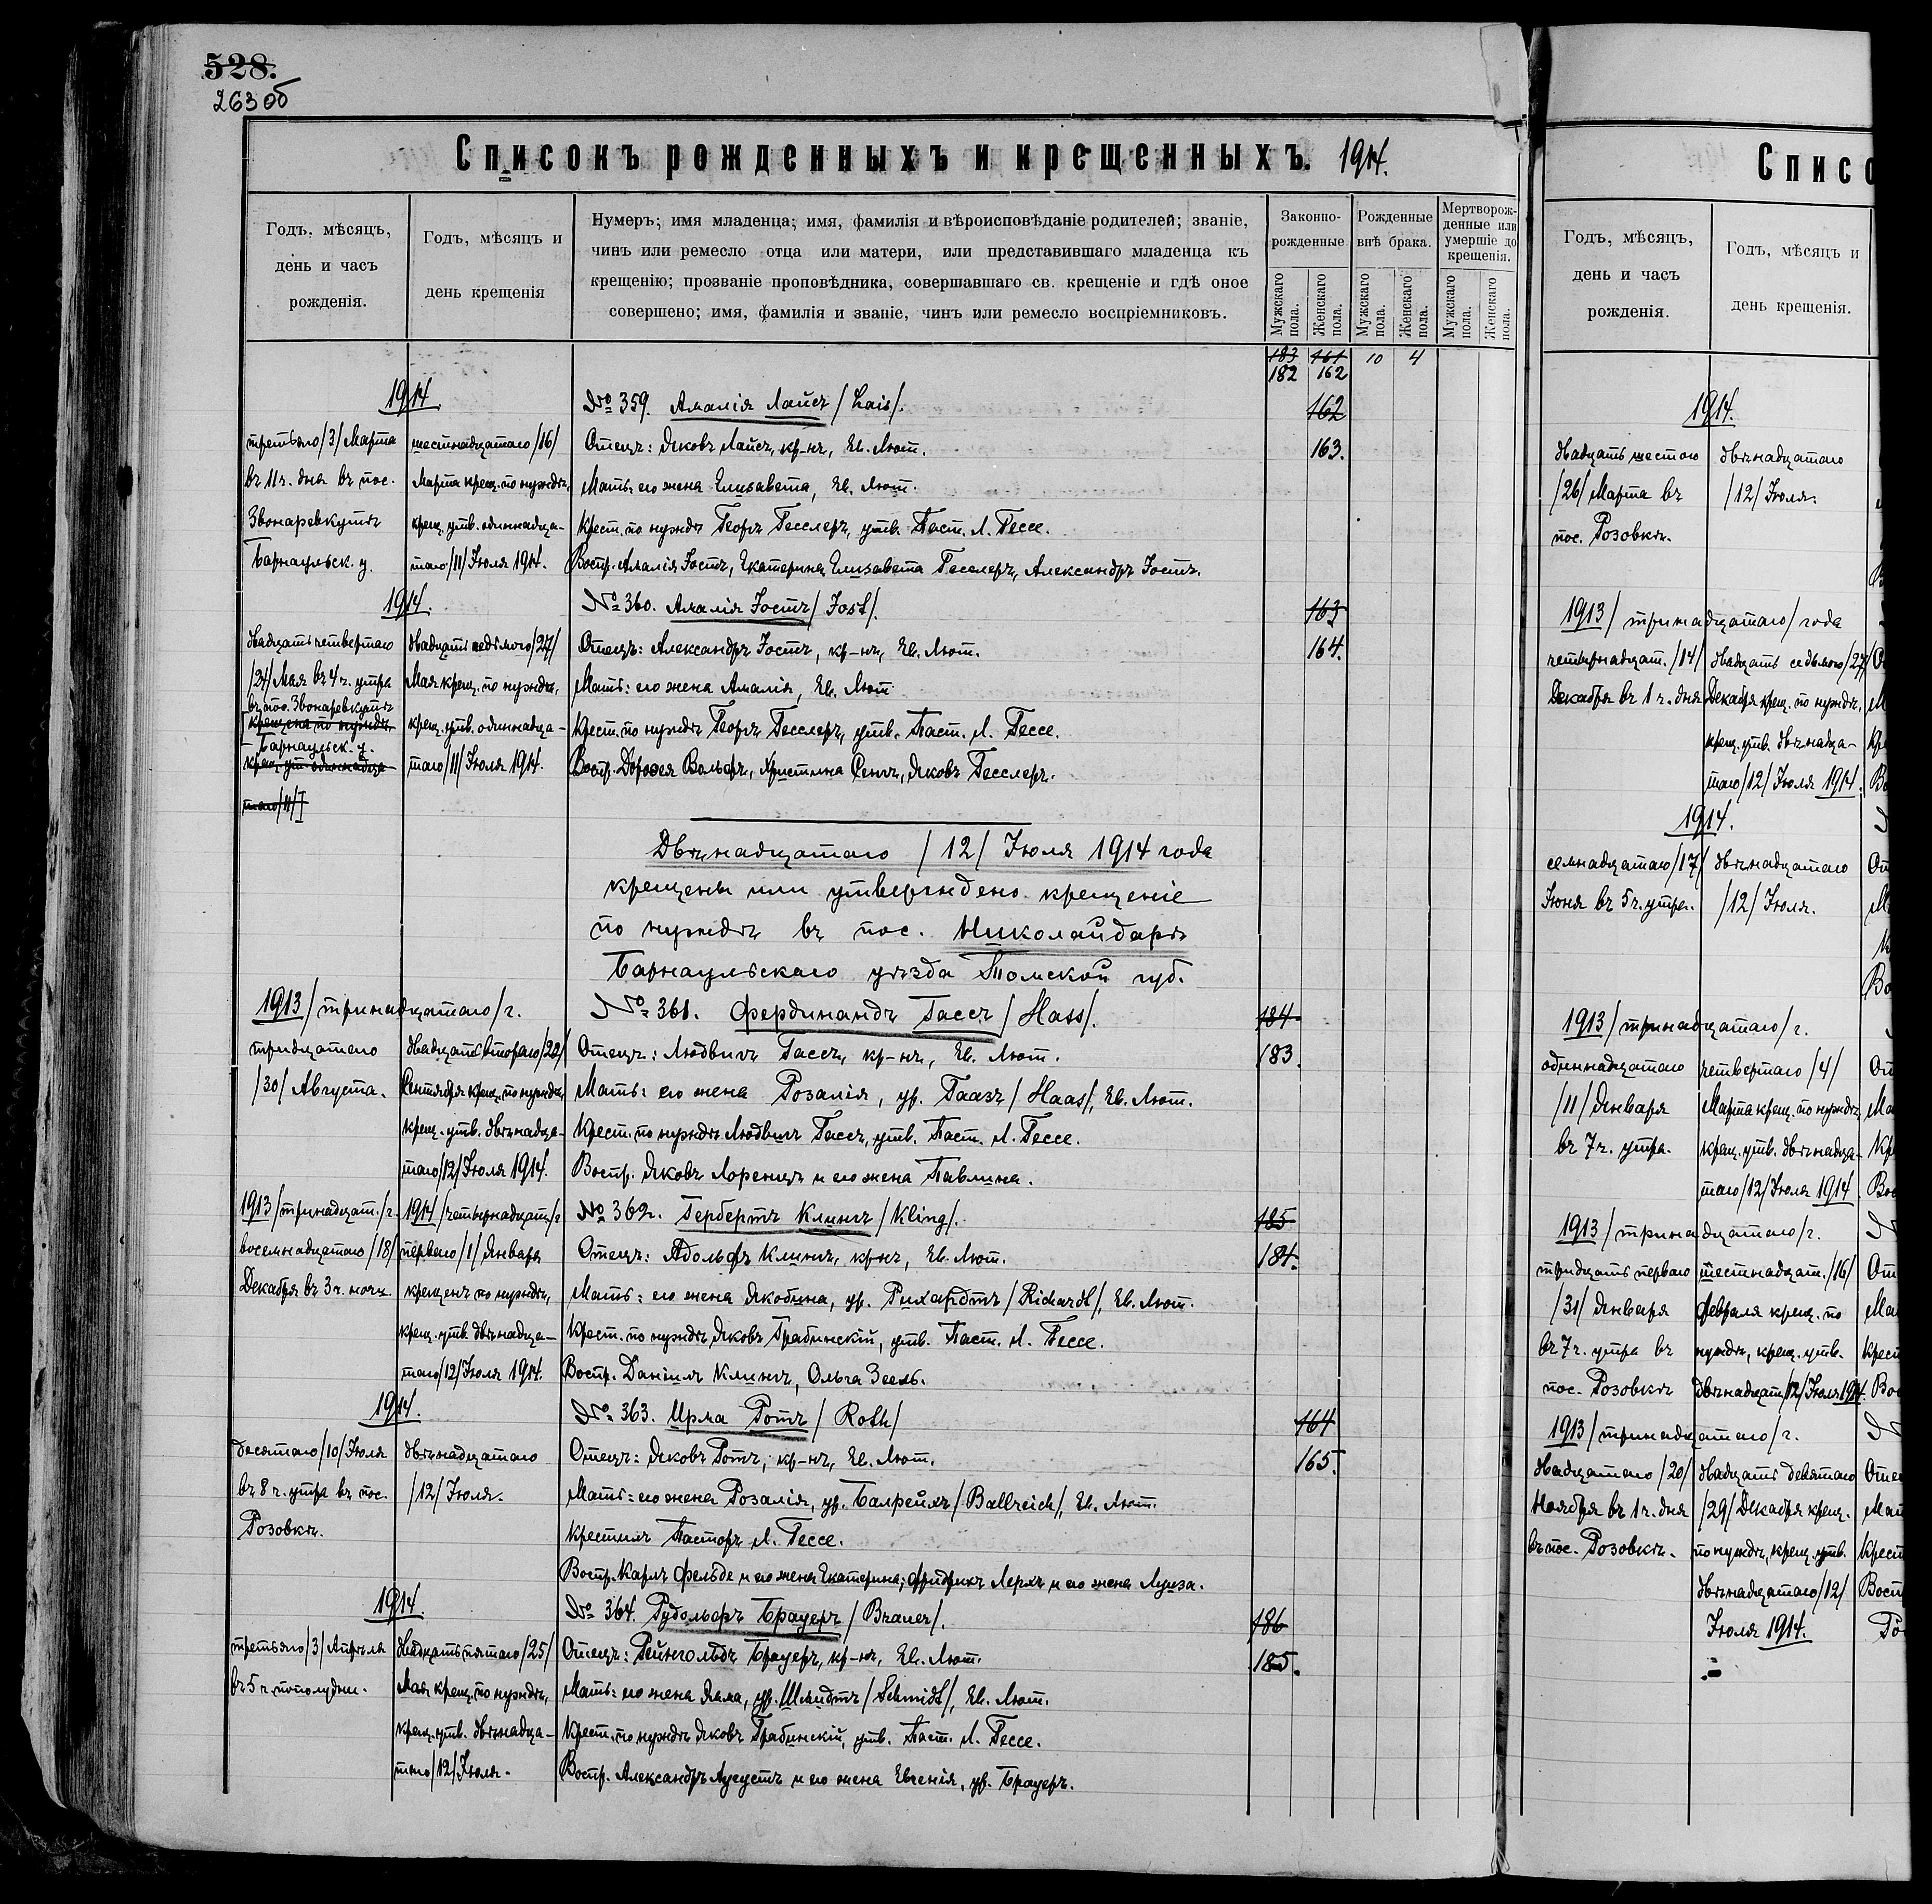 528.
263 об
Списокъ рожденныхъ и крещенныхъ. 1914.
Годъ, мѣсяцъ,
день и часъ
рожденія.
Годъ, мѣсяцъ и
день крещенія
Нумеръ; имя младенца; имя, фамилія и вѣроисповѣданіе родителей; званіе,
чинъ или ремесло отца или матери, или представившаго младенца къ
крещенію; прозваніе проповѣдника, совершавшаго св. крещеніе и гдѣ оное
совершено; имя, фамилія и званіе, чинъ или ремесло воспріемниковъ.
Законно-
рожденные
Рожденные
внѣ брака.
Мертворож-
денные или
умершіе до
крещенія.
Мужскаго пола.
Женскаго пола.
Мужскаго пола.
Женскаго пола.
Мужскаго пола.
Женскаго пола.
183 161 10 4
182 162
1914
№ 359. Амалія Лайсъ /Lais/.
162
третьяго /3/ Марта
въ 11 ч. дня въ пос.
Звонаревкутъ
Барнаульск. у.
шестнадцатаго /16/
Марта крещ. по нуждѣ,
крещ. утв. одиннадца-
таго /11/ Іюля 1914.
Отецъ: Яковъ Лайсъ, кр-нъ, Ев. Лют.
163.
Мать: его жена Елизавета, Ев. Лют.
Крест. по нуждѣ Георгъ Гесслеръ, утв. Паст. Л. Гессе.
Воспр. Амалія Іостъ, Екатерина Елизавета Гесслеръ, Александръ Іостъ.
1914.
№ 360. Амалія Іостъ /Jost/.
163
двадцать четвертаго
/24/ Мая въ 4 ч. утра
въ пос. Звонаревкутъ
крещена по нуждѣ,
Барнаульск. у.
крещ. ут. одиннадца-
таго /11/ I
двадцать седьмого /27/
Мая крещ. по нуждѣ,
крещ. утв. одиннадца-
таго /11/ Іюля 1914.
Отецъ: Александръ Іостъ, кр-нъ, Ев. Лют.
164.
Мать: его жена Амалія, Ев. Лют
Крест. по нуждѣ Георгъ Гесслеръ, утв. Паст. Л. Гессе.
Воспр. Доротея Вольфъ, Христина Сенъ, Яковъ Гесслеръ.
Двѣнадцатаго /12/ Іюля 1914 года
крещены или утверждено крещеніе
по нуждѣ въ пос. Николайдаръ
Барнаульскаго уѣзда Томской губ.
1913 /тринадцатаго/ г.
№ 361. Фердинандъ Гассъ /Hass/.
184
тридцатаго
/30/ Августа.
двадцать второго /22/
Сентября крещ. по нуждѣ,
крещ. утв. двѣнадца-
таго /12/ Іюля 1914.
Отецъ: Людвигъ Гассъ, кр-нъ, Ев. Лют.
183.
Мать: его жена Розалія, ур. Гаазъ /Haas/, Ев. Лют.
Крест. по нуждѣ Людвигъ Гассъ, утв. Паст. Л. Гессе.
Воспр. Яковъ Лоренцъ и его жена Павлина.
1913 /тринадцат./ г.
восемнадцатаго /18/
Декабря въ 3 ч. ночи
1914 /четырнадцат/ г
перваго /1/ Января
крещенъ по нуждѣ,
крещ. утв. двѣнадца-
таго /12/ Іюля 1914.
№ 362. Гербертъ Клингъ /Kling/.
185
Отецъ: Адольфъ Клингъ, кр-нъ, Ев. Лют.
184.
Мать: его жена Якобина, ур. Рихардтъ /Richardt/, Ев. Лют.
Крест. по нуждѣ Яковъ Грабинскій, утв. Паст. Л. Гессе.
Воспр. Даніилъ Клингъ, Ольга Зеель.
1914.
№ 363. Ирма Ротъ /Roth/
164
десятаго /10/ Іюля
въ 8 ч. утра въ пос.
Розовкѣ.
двѣнадцатаго
/12/ Іюля.
Отецъ: Яковъ Ротъ, кр-нъ, Ев. Лют.
165.
Мать: его жена Розалія, ур. Балрейхъ /Ballreich/, Ев. Лют.
Крестилъ Пасторъ Л. Гессе.
Воспр. Карлъ Фельде и его жена Екатерина; Фридрихъ Лерхъ и его жена Луиза.
1914.
№ 364. Рудольфъ Брауеръ /Brauer/.
186
третьяго /3/ Апрѣля
въ 5 ч. пополудни.
двадцать пятаго /25/
Мая крещ. по нуждѣ,
крещ. утв. двѣнадца-
таго /12/ Іюля.
Отецъ: Рейнгольдъ Брауеръ, кр-нъ, Ев. Лют.
185.
Мать: его жена Эмма, ур. Шмидтъ /Schmidt/, Ев. Лют.
Крест. по нуждѣ Яковъ Грабинскій, утв. Паст. Л. Гессе.
Воспр. Александръ Аугустъ и его жена Евгенія, ур. Брауеръ.
Списо
Годъ, мѣсяцъ,
день и часъ
рожденія.
Годъ, мѣсяцъ и
день крещенія.
1914.
двадцать шестого
/26/ Марта въ
пос. Розовкѣ.
двѣнадцатаго
/12/ Іюля.
1913 /тринадцатаго/ года
четырнадцат. /14/
Декабря въ 1 ч. дня
двадцать седьмого /27/
Декабря крещ. по нуждѣ,
крещ. утв. двѣнадца-
таго /12/ Іюля 1914.
1914.
семнадцатаго /17/
Іюня въ 5 ч. утра.
двѣнадцатаго
/12/ Іюля.
1913 /тринадцатаго/ г.
одиннадцатаго
/11/ Января
въ 7 ч. утра.
четвертаго /4/
Марта крещ. по нуждѣ
крещ. утв. двѣнадца-
таго /12/ Іюля 1914
1913 /тринадцатаго/ г.
тридцать перваго
/31/ Января
въ 7 ч. утра въ
пос. Розовкѣ
шестнадцат. /16/
Февраля крещ. по
нуждѣ, крещ. утв.
двѣнадцат /12/ Іюля 1914.
1913 /тринадцатаго/ г.
двадцатаго /20/
Ноября въ 1 ч. дня
въ пос. Розовкѣ.
двадцать девятаго
/29/ Декабря крещ.
по нуждѣ, крещ. утв.
двѣнадцатаго /12/
Іюля 1914.